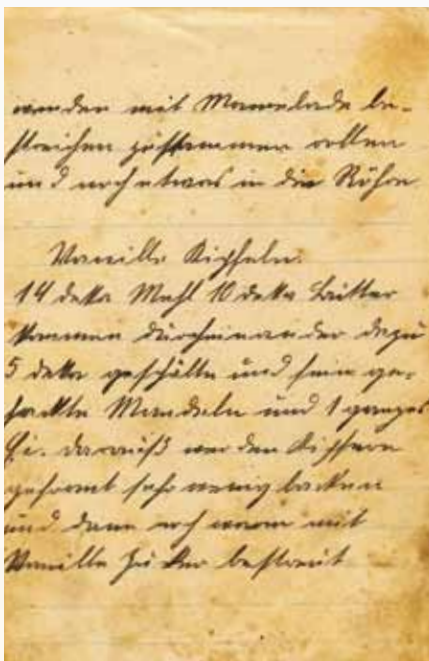 werden mit Marmelade be-
streichen zusammen rollen
und noch etwas in die Röhre
Vanille Kipfeln.
14 deka Mehl 10 deka Butter
kommen durcheinander dazu
5 deka geschälte und fein ge-
hackte Mandeln und 1 ganzes
Ei. daraus werden Kipfern
geformt sehr wenig backen
und dann noch warm mit
Vanille Zucker bestreut